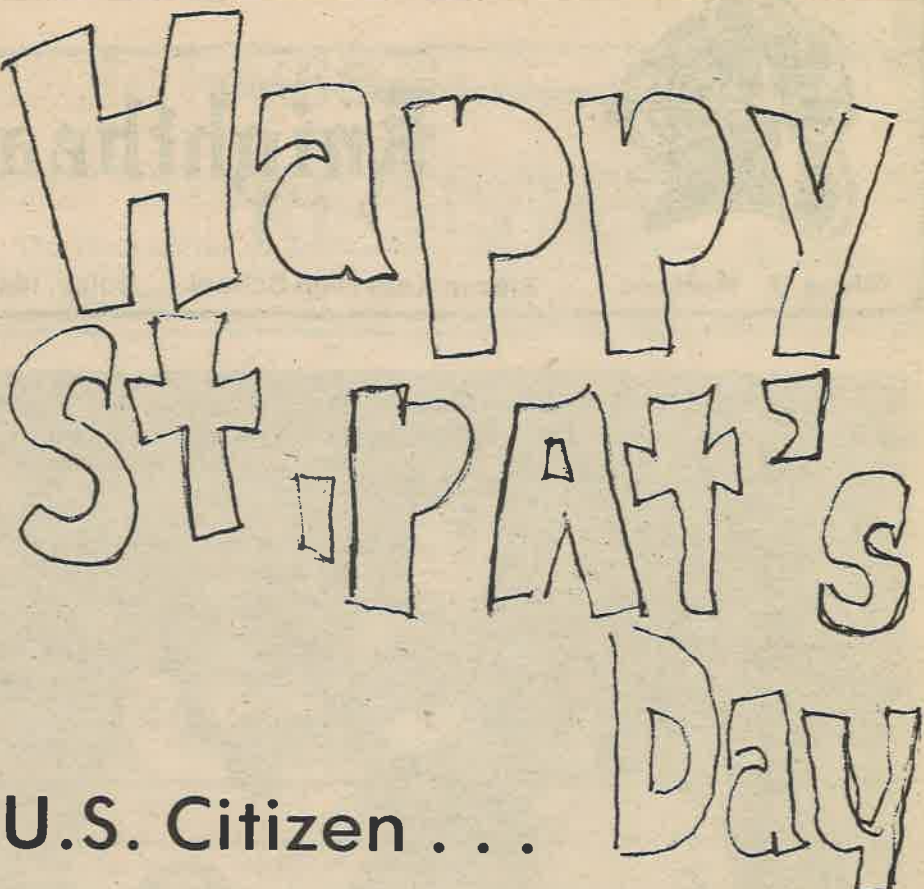 Happy
St. PAt's
Day
U.S. Citizen . . .